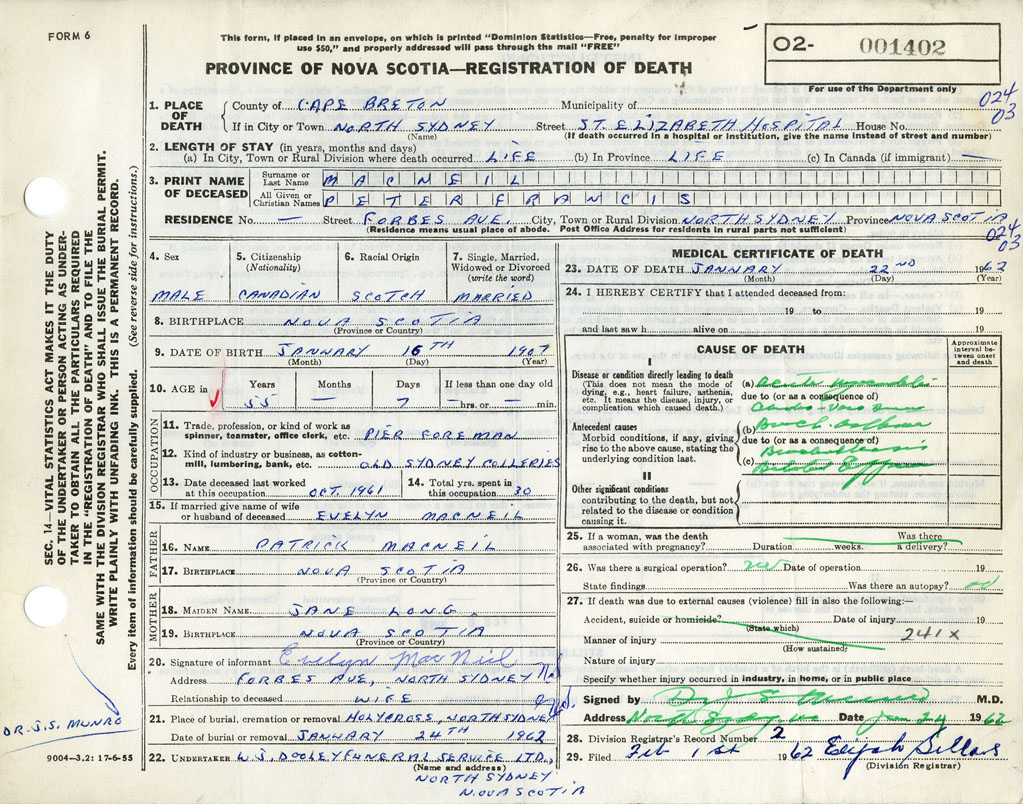 FORM 6
This form, if placed in an envelope, on which is printed "Dominion Statistics—Free, penalty for improper
use $50," and properly addressed will pass through the mail "FREE"
PROVINCE OF NOVA SCOTIA—REGISTRATION OF DEATH
O2- 001402
For use of the Department only
024
03
1. PLACE OF DEATH
County of CAPE BRETON Municipality of
If in City or Town NORTH SYDNEY Street ST. ELIZABETH HOSPITAL House No.
(Name) (If death occurred in a hospital or institution, give the name instead of street and number)
2. LENGTH OF STAY (in years, months and days)
(a) In City, Town or Rural Division where death occurred LIFE (b) In Province LIFE (c) In Canada (if immigrant) —
3. PRINT NAME OF DECEASED
Surname or Last Name MACNEIL
All Given or Christian Names PETER FRANCIS
RESIDENCE No. — Street FORBES AVE. City, Town or Rural Division NORTH SYDNEY Province NOVA SCOTIA
(Residence means usual place of abode. Post Office Address for residents in rural parts not sufficient)
024
03
4. Sex
MALE
5. Citizenship (Nationality)
CANADIAN
6. Racial Origin
SCOTCH
7. Single, Married, Widowed or Divorced (write the word)
MARRIED
8. BIRTHPLACE NOVA SCOTIA
(Province or Country)
9. DATE OF BIRTH JANUARY 16TH 1907
(Month) (Day) (Year)
10. AGE in Years Months Days If less than one day old
55 — 7 — hrs. or — min.
OCCUPATION
11. Trade, profession, or kind of work as spinner, teamster, office clerk, etc. PIER FOREMAN
12. Kind of industry or business, as cotton-mill, lumbering, bank, etc. OLD SYDNEY COLLERIES
13. Date deceased last worked at this occupation OCT. 1961
14. Total yrs. spent in this occupation 30
15. If married give name of wife or husband of deceased EVELYN MACNEIL
FATHER
16. NAME PATRICK MACNEIL
17. BIRTHPLACE NOVA SCOTIA
(Province or Country)
MOTHER
18. MAIDEN NAME JANE LONG
19. BIRTHPLACE NOVA SCOTIA
(Province or Country)
20. Signature of informant Evelyn MacNeil
Address FORBES AVE, NORTH SYDNEY
Relationship to deceased WIFE
21. Place of burial, cremation or removal HOLYCROSS, NORTH SYDNEY
Date of burial or removal JANUARY 24TH 1962
22. UNDERTAKER W.J. DOOLEY FUNERAL SERVICE LTD.
(Name and address)
NORTH SYDNEY
NOVA SCOTIA
MEDICAL CERTIFICATE OF DEATH
23. DATE OF DEATH JANUARY 22ND 1962
(Month) (Day) (Year)
24. I HEREBY CERTIFY that I attended deceased from:
19 to 19
and last saw h alive on 19
CAUSE OF DEATH
Approximate interval between onset and death
I
Disease or condition directly leading to death
(This does not mean the mode of dying, e.g., heart failure, asthenia, etc. It means the disease, injury, or complication which caused death.)
(a) Acute
due to (or as a consequence of)
Antecedent causes
Morbid conditions, if any, giving rise to the above cause, stating the underlying condition last.
(b)
due to (or as a consequence of)
(c)
II
Other significant conditions
contributing to the death, but not related to the disease or condition causing it.
25. If a woman, was the death associated with pregnancy? Duration weeks. Was there a delivery?
26. Was there a surgical operation? Date of operation 19
State findings Was there an autopsy?
27. If death was due to external causes (violence) fill in also the following:—
Accident, suicide or homicide? Date of injury 19
(State which)
241X
Manner of injury
(How sustained)
Nature of injury
Specify whether injury occurred in industry, in home, or in public place
Signed by Dr J S Munro M.D.
Address North Sydney NS Date Jan 24 1962
28. Division Registrar's Record Number 2
29. Filed Feb 1st 1962 Elijah Sellars
(Division Registrar)
SEC. 14—VITAL STATISTICS ACT MAKES IT THE DUTY
OF THE UNDERTAKER OR PERSON ACTING AS UNDER-
TAKER TO OBTAIN ALL THE PARTICULARS REQUIRED
IN THE "REGISTRATION OF DEATH" AND TO FILE THE
SAME WITH THE DIVISION REGISTRAR WHO SHALL ISSUE THE BURIAL PERMIT.
WRITE PLAINLY WITH UNFADING INK. THIS IS A PERMANENT RECORD.
Every item of information should be carefully supplied. (See reverse side for instructions.)
DR. J.S. MUNRO
9004—3.2: 17-6-55